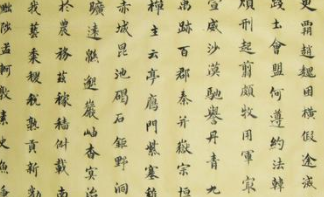 更霸趙魏困橫假途滅
踐土會盟何遵約法韓
煩刑起翦頗牧用軍最
宣威沙漠馳譽丹青九
禹跡百郡秦并嶽宗恒
禪主云亭鴈門紫塞
赤城昆池碣石鉅野洞
曠遠緜邈巖岫杳冥治
於農務茲稼穡俶載南
我藝黍稷稅熟貢新勸
陟孟軻敦素史魚